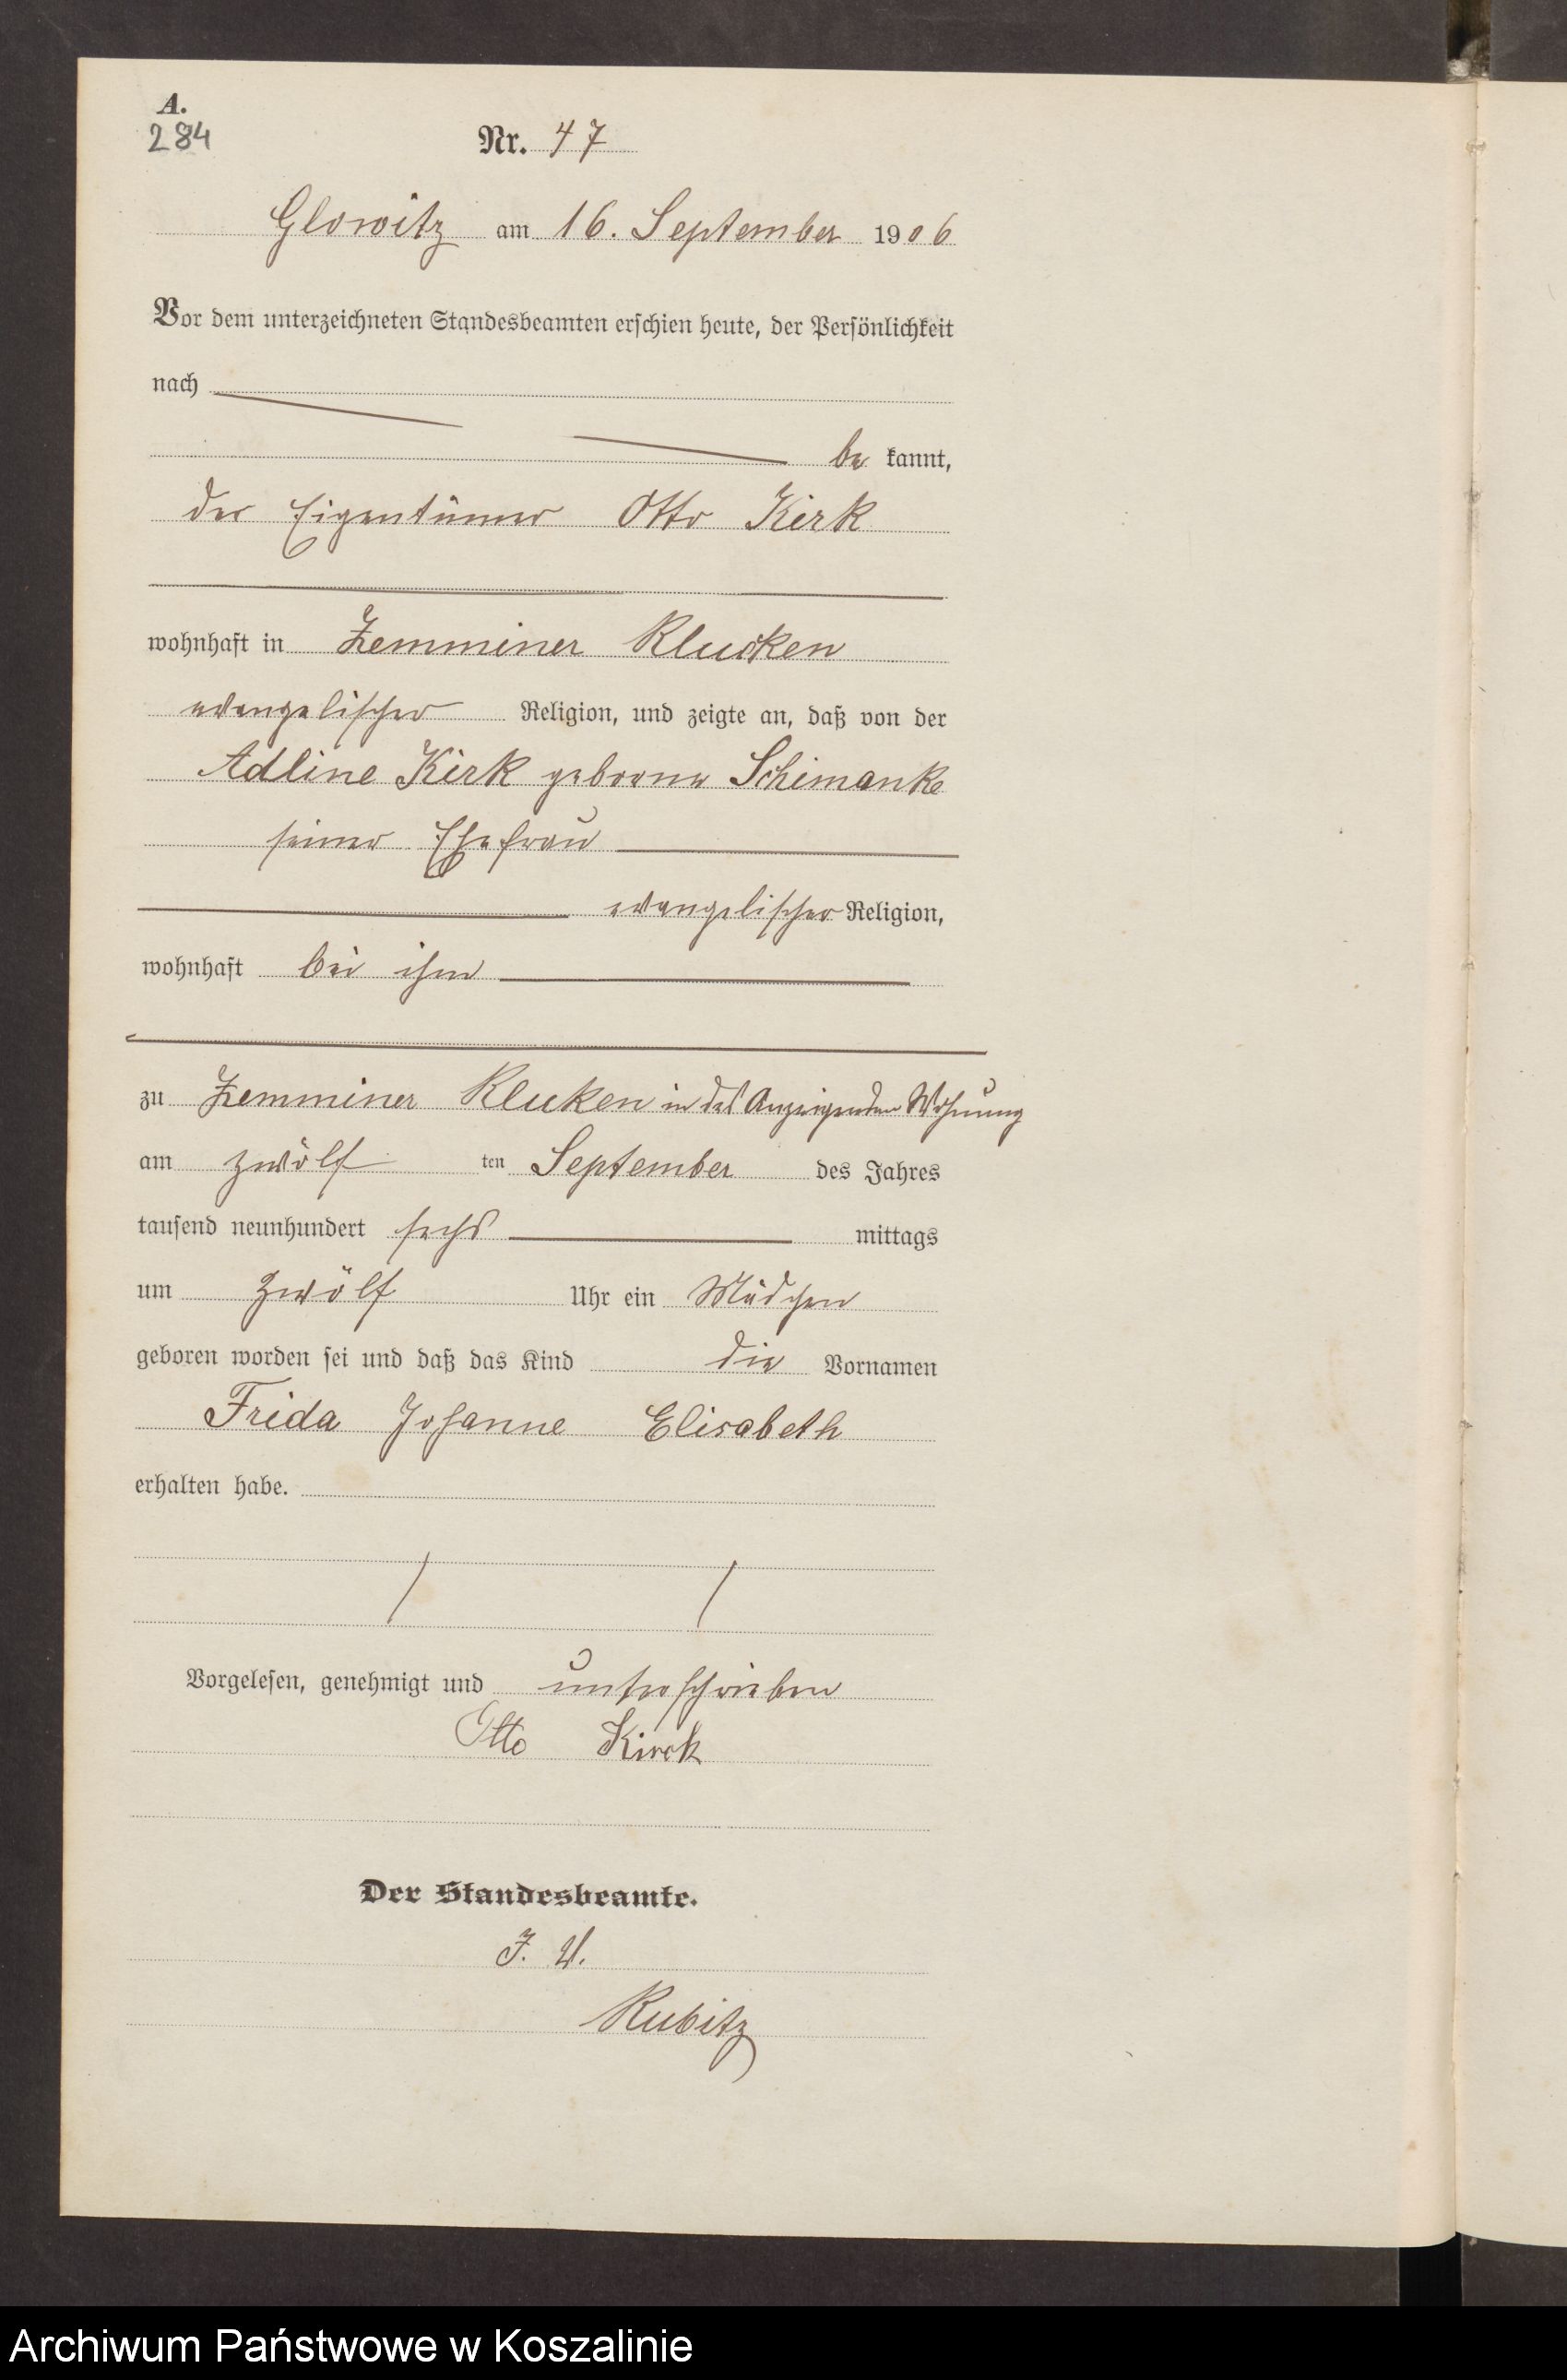 A.
284
Nr. 47
Glowitz am 16. September 1906
Vor dem unterzeichneten Standesbeamten erschien heute, der Persönlichkeit
nach
be kannt,
der Eigentümer Otto Kirk
wohnhaft in Zemminer Klucken
evangelischer Religion, und zeigte an, daß von der
Adline Kirk geborne Schimanke
seiner Ehefrau
evangelischer Religion,
wohnhaft bei ihm
zu Zemminer Kluken in des Anzeigenden Wohnung
am zwölf ten September des Jahres
tausend neunhundert sechs mittags
um zwölf Uhr ein Mädchen
geboren worden sei und daß das Kind die Vornamen
Frida Johanne Elisabeth
erhalten habe.
Vorgelesen, genehmigt und unterschrieben
Otto Kirck
Der Standesbeamte.
J. V.
Rubitz
Archiwum Państwowe w Koszalinie